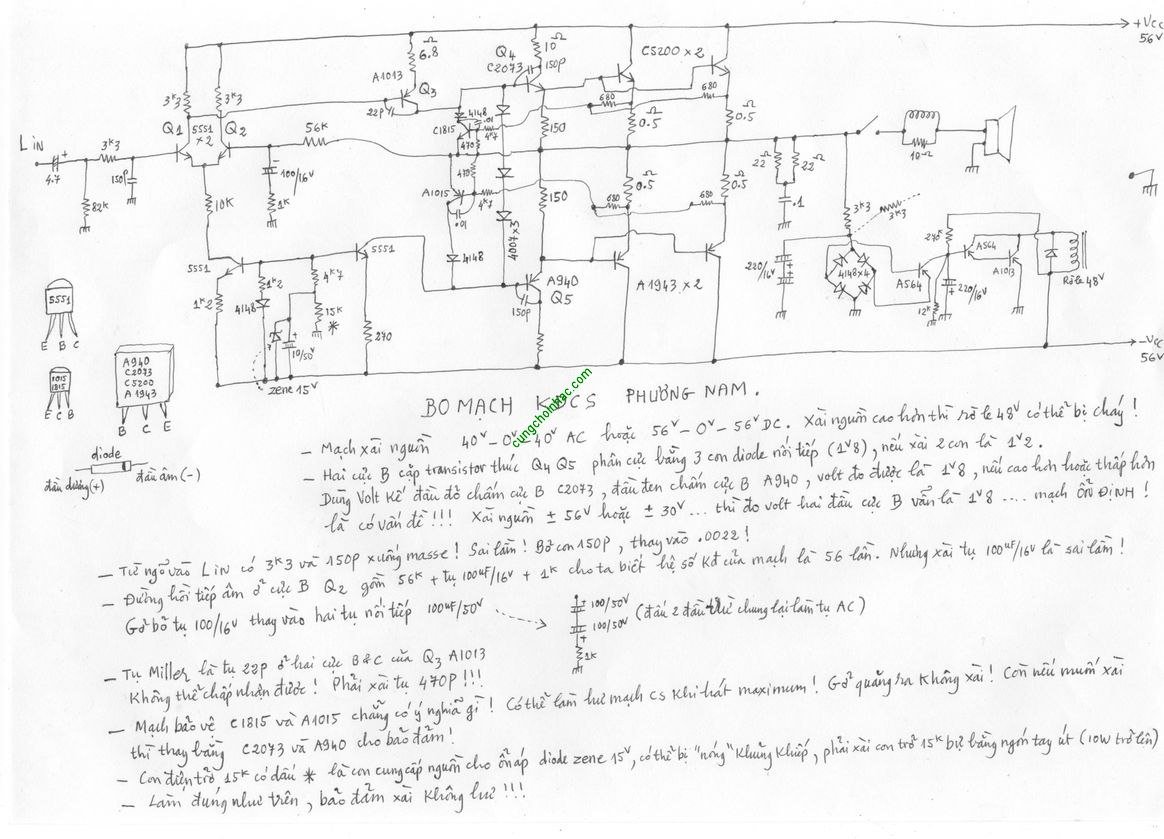 +Vcc
56V
Ω
6.8
10Ω
Q4
C2073
150p
C5200 x 2
A1013
Q3
22P
3K3
3K3
4148
C1815
.01
4K7
470
680
680
Ω
0.5
Ω
0.5
150
Q1
5551
x 2
Q2
56K
L IN
+
4.7
3K3
150p
82K
100/16V
1K
10K
470
A1015
4K7
.01
150
680
680
Ω
0.5
Ω
0.5
22Ω
22Ω
.1
10Ω
3K3
3K3
5551
5551
1K2
1K2
4148
4K7
15K
*
10/50V
270
zene 15V
4148
4007x3
A940
Q5
150p
A1943 x 2
220/16V
4148x4
270K
A564
A564
A1013
12K
220/16V
Rờ le 48V
-Vcc
56V
5551
E B C
1015
1815
E C B
A940
C2073
C5200
A1943
B C E
diode
đầu dương(+)
đầu âm(-)
BO MẠCH KDCS PHƯƠNG NAM.
cungchoinhac.com
– Mạch xài nguồn 40V–0V–40V AC hoặc 56V–0V–56V DC. Xài nguồn cao hơn thì rờ le 48V có thể bị cháy!
– Hai cực B cặp transistor thúc Q4 Q5 phân cực bằng 3 con diode nối tiếp (1V8), nếu xài 2 con là 1V2.
Dùng Volt kế đầu đỏ chấm cực B C2073, đầu đen chấm cực B A940, volt đo được là 1V8, nếu cao hơn hoặc thấp hơn
là có vấn đề!!! Xài nguồn ± 56V hoặc ± 30V... thì đo volt hai đầu cực B vẫn là 1V8 .... mạch ỔN ĐỊNH!
– Từ ngõ vào L in có 3K3 và 150P xuống masse! Sai lầm! Bỏ con 150P, thay vào .0022!
– Đường hồi tiếp âm ở cực B Q2 gồm 56K + tụ 100uF/16V + 1K cho ta biết hệ số Kđ của mạch là 56 lần. Nhưng xài tụ 100uF/16V là sai lầm!
Gỡ bỏ tụ 100/16V thay vào hai tụ nối tiếp 100uF/50V
+ 100/50V
100/50V
+
1K
(đấu 2 đầu trừ chung lại làm tụ AC)
– Tụ Miller là tụ 22p ở hai cực B&C của Q3 A1013
Không thể chấp nhận được! Phải xài tụ 470P!!!
– Mạch bảo vệ C1815 và A1015 chẳng có ý nghĩa gì! Có thể làm hư mạch CS khi hát maximum! Gỡ quăng ra không xài! Còn nếu muốn xài
thì thay bằng C2073 và A940 cho bảo đảm!
– Con điện trở 15K có dấu * là con cung cấp nguồn cho ổn áp diode zene 15V, có thể bị "nóng" khủng khiếp, phải xài con trở 15K bự bằng ngón tay út (10W trở lên)
– Làm đúng như trên, bảo đảm xài không hư!!!